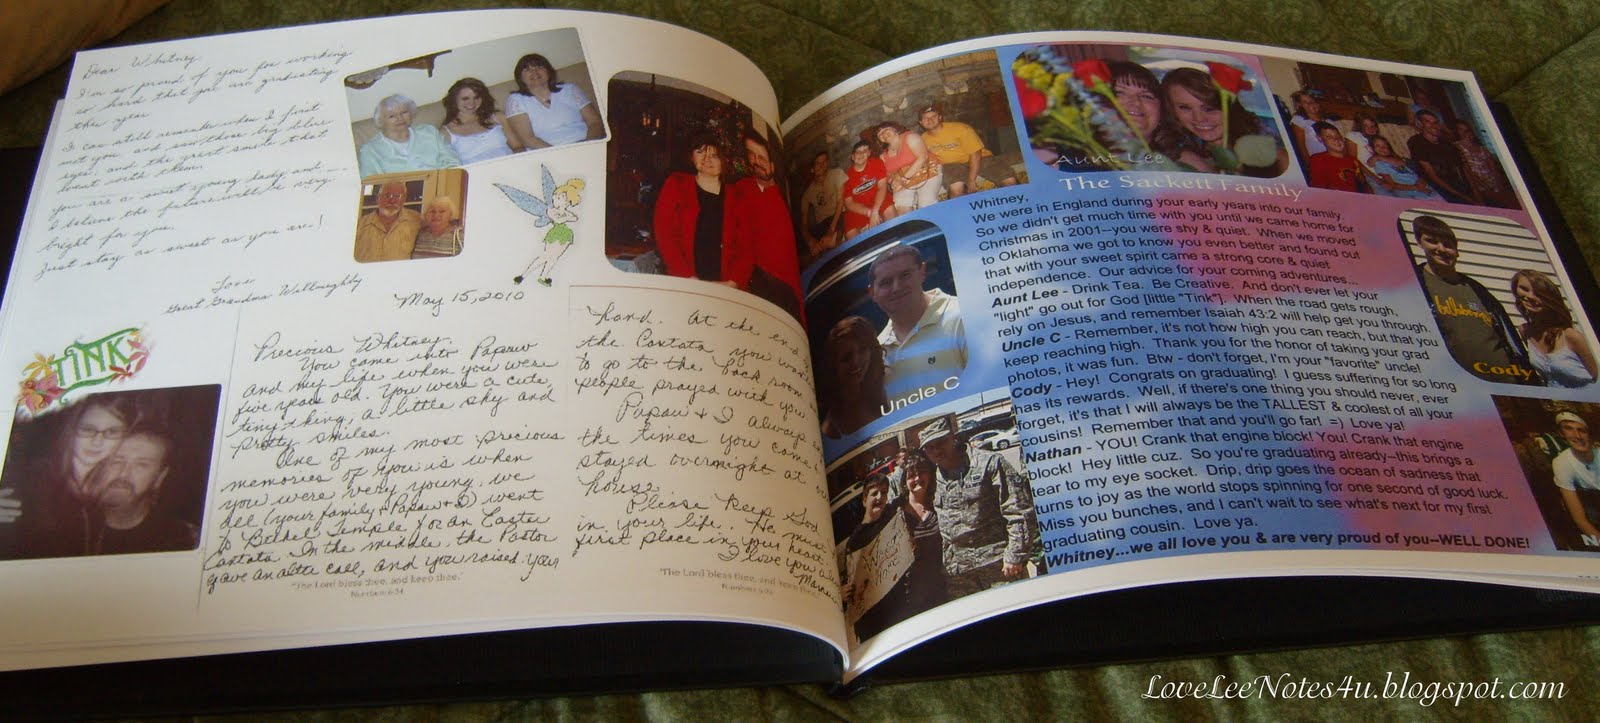 Dear Whitney,
I'm so proud of you for working
so hard that you are graduating
this year.
I can still remember when I first
met you and saw those big blue
eyes, and the great smile that
went with them.
You are a sweet young lady, and
I believe the future will be very
bright for you.
Just stay as sweet as you are!
Love,
Great Grandma Willoughby
TINK
May 15, 2010
Precious Whitney,
You came into Papaw
and my life when you were
five years old. You were a cute,
tiny thing; a little shy and
pretty smiles.
One of my most precious
memories of you is when
you were very young, we
all (your family & Papaw & I) went
to Bethel Temple for an Easter
Cantata. In the middle, the Pastor
gave an alter call, and you raised your
"The Lord bless thee, and keep thee."
Numbers 6:24
hand. At the end
the Cantata you wan
to go to the back room
people prayed with you
Papaw & I always
the times you came
stayed overnight at
house.
Please keep God
in your life. He must
first place in your heart
I love you
"The Lord bless thee, and keep
Numbers 6:24
Aunt Lee
The Sackett Family
Whitney,
We were in England during your early years into our family.
So we didn't get much time with you until we came home for
Christmas in 2001--you were shy & quiet. When we moved
to Oklahoma we got to know you even better and found out
that with your sweet spirit came a strong core & quiet
independence. Our advice for your coming adventures...
Aunt Lee - Drink Tea. Be Creative. And don't ever let your
"light" go out for God [little "Tink"]. When the road gets rough,
rely on Jesus, and remember Isaiah 43:2 will help get you through.
Uncle C - Remember, it's not how high you can reach, but that you
keep reaching high. Thank you for the honor of taking your grad
photos, it was fun. Btw - don't forget, I'm your "favorite" uncle!
Cody - Hey! Congrats on graduating! I guess suffering for so long
has its rewards. Well, if there's one thing you should never, ever
forget, it's that I will always be the TALLEST & coolest of all your
cousins! Remember that and you'll go far! =) Love ya!
Nathan - YOU! Crank that engine block! You! Crank that engine
block! Hey little cuz. So you're graduating already--this brings a
tear to my eye socket. Drip, drip goes the ocean of sadness that
turns to joy as the world stops spinning for one second of good luck.
Miss you bunches, and I can't wait to see what's next for my first
graduating cousin. Love ya.
Whitney...we all love you & are very proud of you--WELL DONE!
Uncle C
Cody
N
LoveLeeNotes4u.blogspot.com